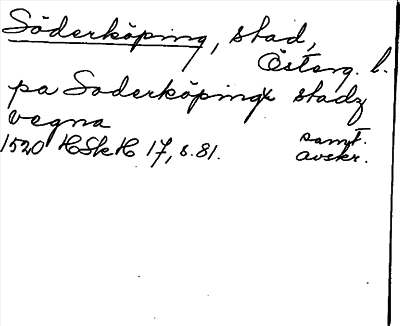 Söderköping, stad,
Österg. l.
pa Soderköpingx stadz
vegna
1520 HSkH 17, s. 81. samt.
avskr.